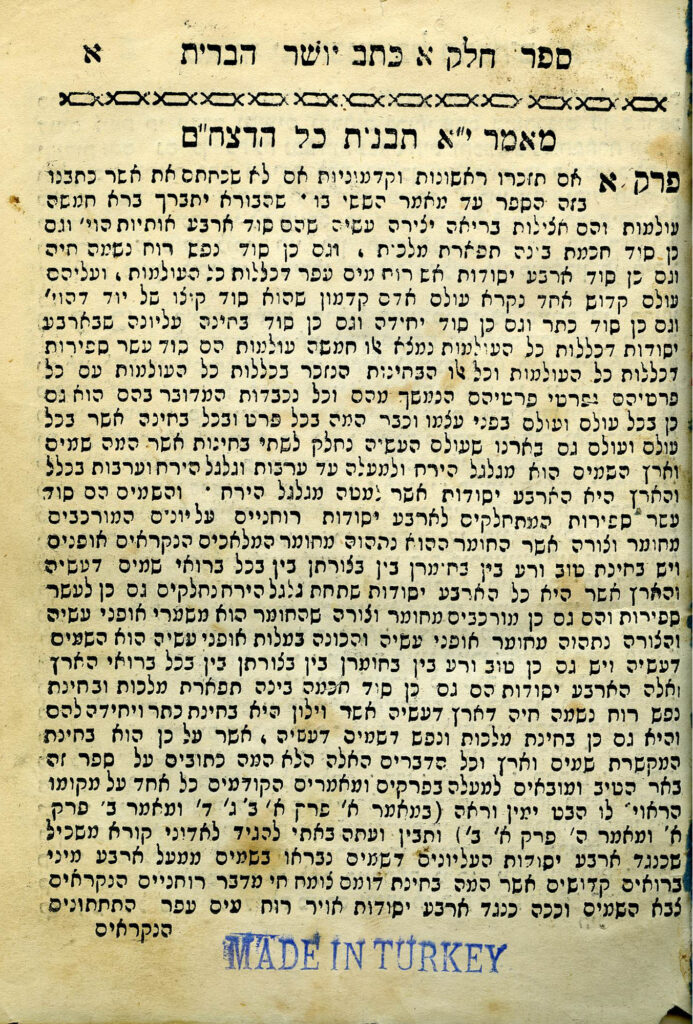 ספר חלק א כתב יושר הברית א
מאמר י"א תבנית כל הדצח"ם
פרק א אם תזכרו ראשונות וקדמוניות אם לא שכחתם את אשר כתבנו
בזה הספר עד מאמר הששי בו שהבורא יתברך ברא חמשה
עולמות והם אצילות בריאה יצירה עשיה שהם סוד ארבע אותיות הוי' וגם
כן סוד חכמה בינה תפארת מלכות , וגם כן סוד נפש רוח נשמה חיה
וגם כן סוד ארבע יסודות אש רוח מים עפר דכללות כל העולמות , ועליהם
עולם קדוש אחד נקרא עולם אדם קדמון שהוא סוד קוצו של יוד דהוי'
וגם כן סוד כתר וגם כן סוד יחידה וגם כן סוד בחינה עליונה שבארבע
יסודות דכללות כל העולמות נמצא או חמשה עולמות הם סוד עשר ספירות
דכללות כל העולמות וכל או הבחינות הנזכר בכללות כל העולמות עם כל
פרטיהם ופרטי פרטיהם הנמשך מהם וכל נכבדות המדובר בהם הוא גם
כן בכל עולם ועולם בפני עצמו וכבר המה בכל פרט ובכל בחינה אשר בכל
עולם ועולם גם בארנו שעולם העשיה נחלק לשתי בחינות אשר המה שמים
וארץ השמים הוא מגלגל הירח ולמעלה עד ערבות וגלגל הירח וערבות בכלל
והארץ היא הארבע יסודות אשר למטה מגלגל הירח והשמים הם סוד
עשר ספירות המתחלקים לארבע יסודות רוחניים עליונים המורכבים
מחומר וצורה אשר החומר ההוא נתהוה מחומר המלאכים הנקראים אופנים
ויש בחינת טוב ורע בין בחומרן בין בצורתן בין בכל ברואי שמים דעשיה
והארץ אשר היא כל הארבע יסודות שתחת גלגל הירח נחלקים גם כן לעשר
ספירות והם גם כן מורכבים מחומר וצורה שהחומר הוא משמרי אופני עשיה
והצורה נתהוה מחומר אופני עשיה והכונה במלות אופני עשיה הוא השמים
דעשיה ויש גם כן טוב ורע בין בחומרן בין בצורתן בין בכל ברואי הארץ
ואלה הארבע יסודות הם גם כן סוד חכמה בינה תפארת מלכות ובחינת
נפש רוח נשמה חיה דארץ דעשיה אשר וילון היא בחינת כתר ויחידה להם
והיא גם כן בחינת מלכות ונפש דשמים דעשיה , אשר על כן הוא בחינת
המקשרת שמים וארץ וכל הדברים האלה הלא המה כתובים על ספר זה
באר הטיב ומובאים למעלה בפרקים ומאמרים הקודמים כל אחד על מקומו
הראוי לו הבט ימין וראה (במאמר א' פרק א' ב' ג' ד' ומאמר ב' פרק
א' ומאמר ה' פרק א' ב') ותבין ועתה באתי להגיד לאדוני קורא משכיל
שכנגד ארבע יסודות העליונים דשמים נבראו בשמים ממעל ארבע מיני
ברואים קדושים אשר המה בחינת דומם צומח חי מדבר רוחניים הנקראים
צבא השמים וככה כנגד ארבע יסודות אויר רוח מים עפר התחתונים
הנקראים
MADE IN TURKEY